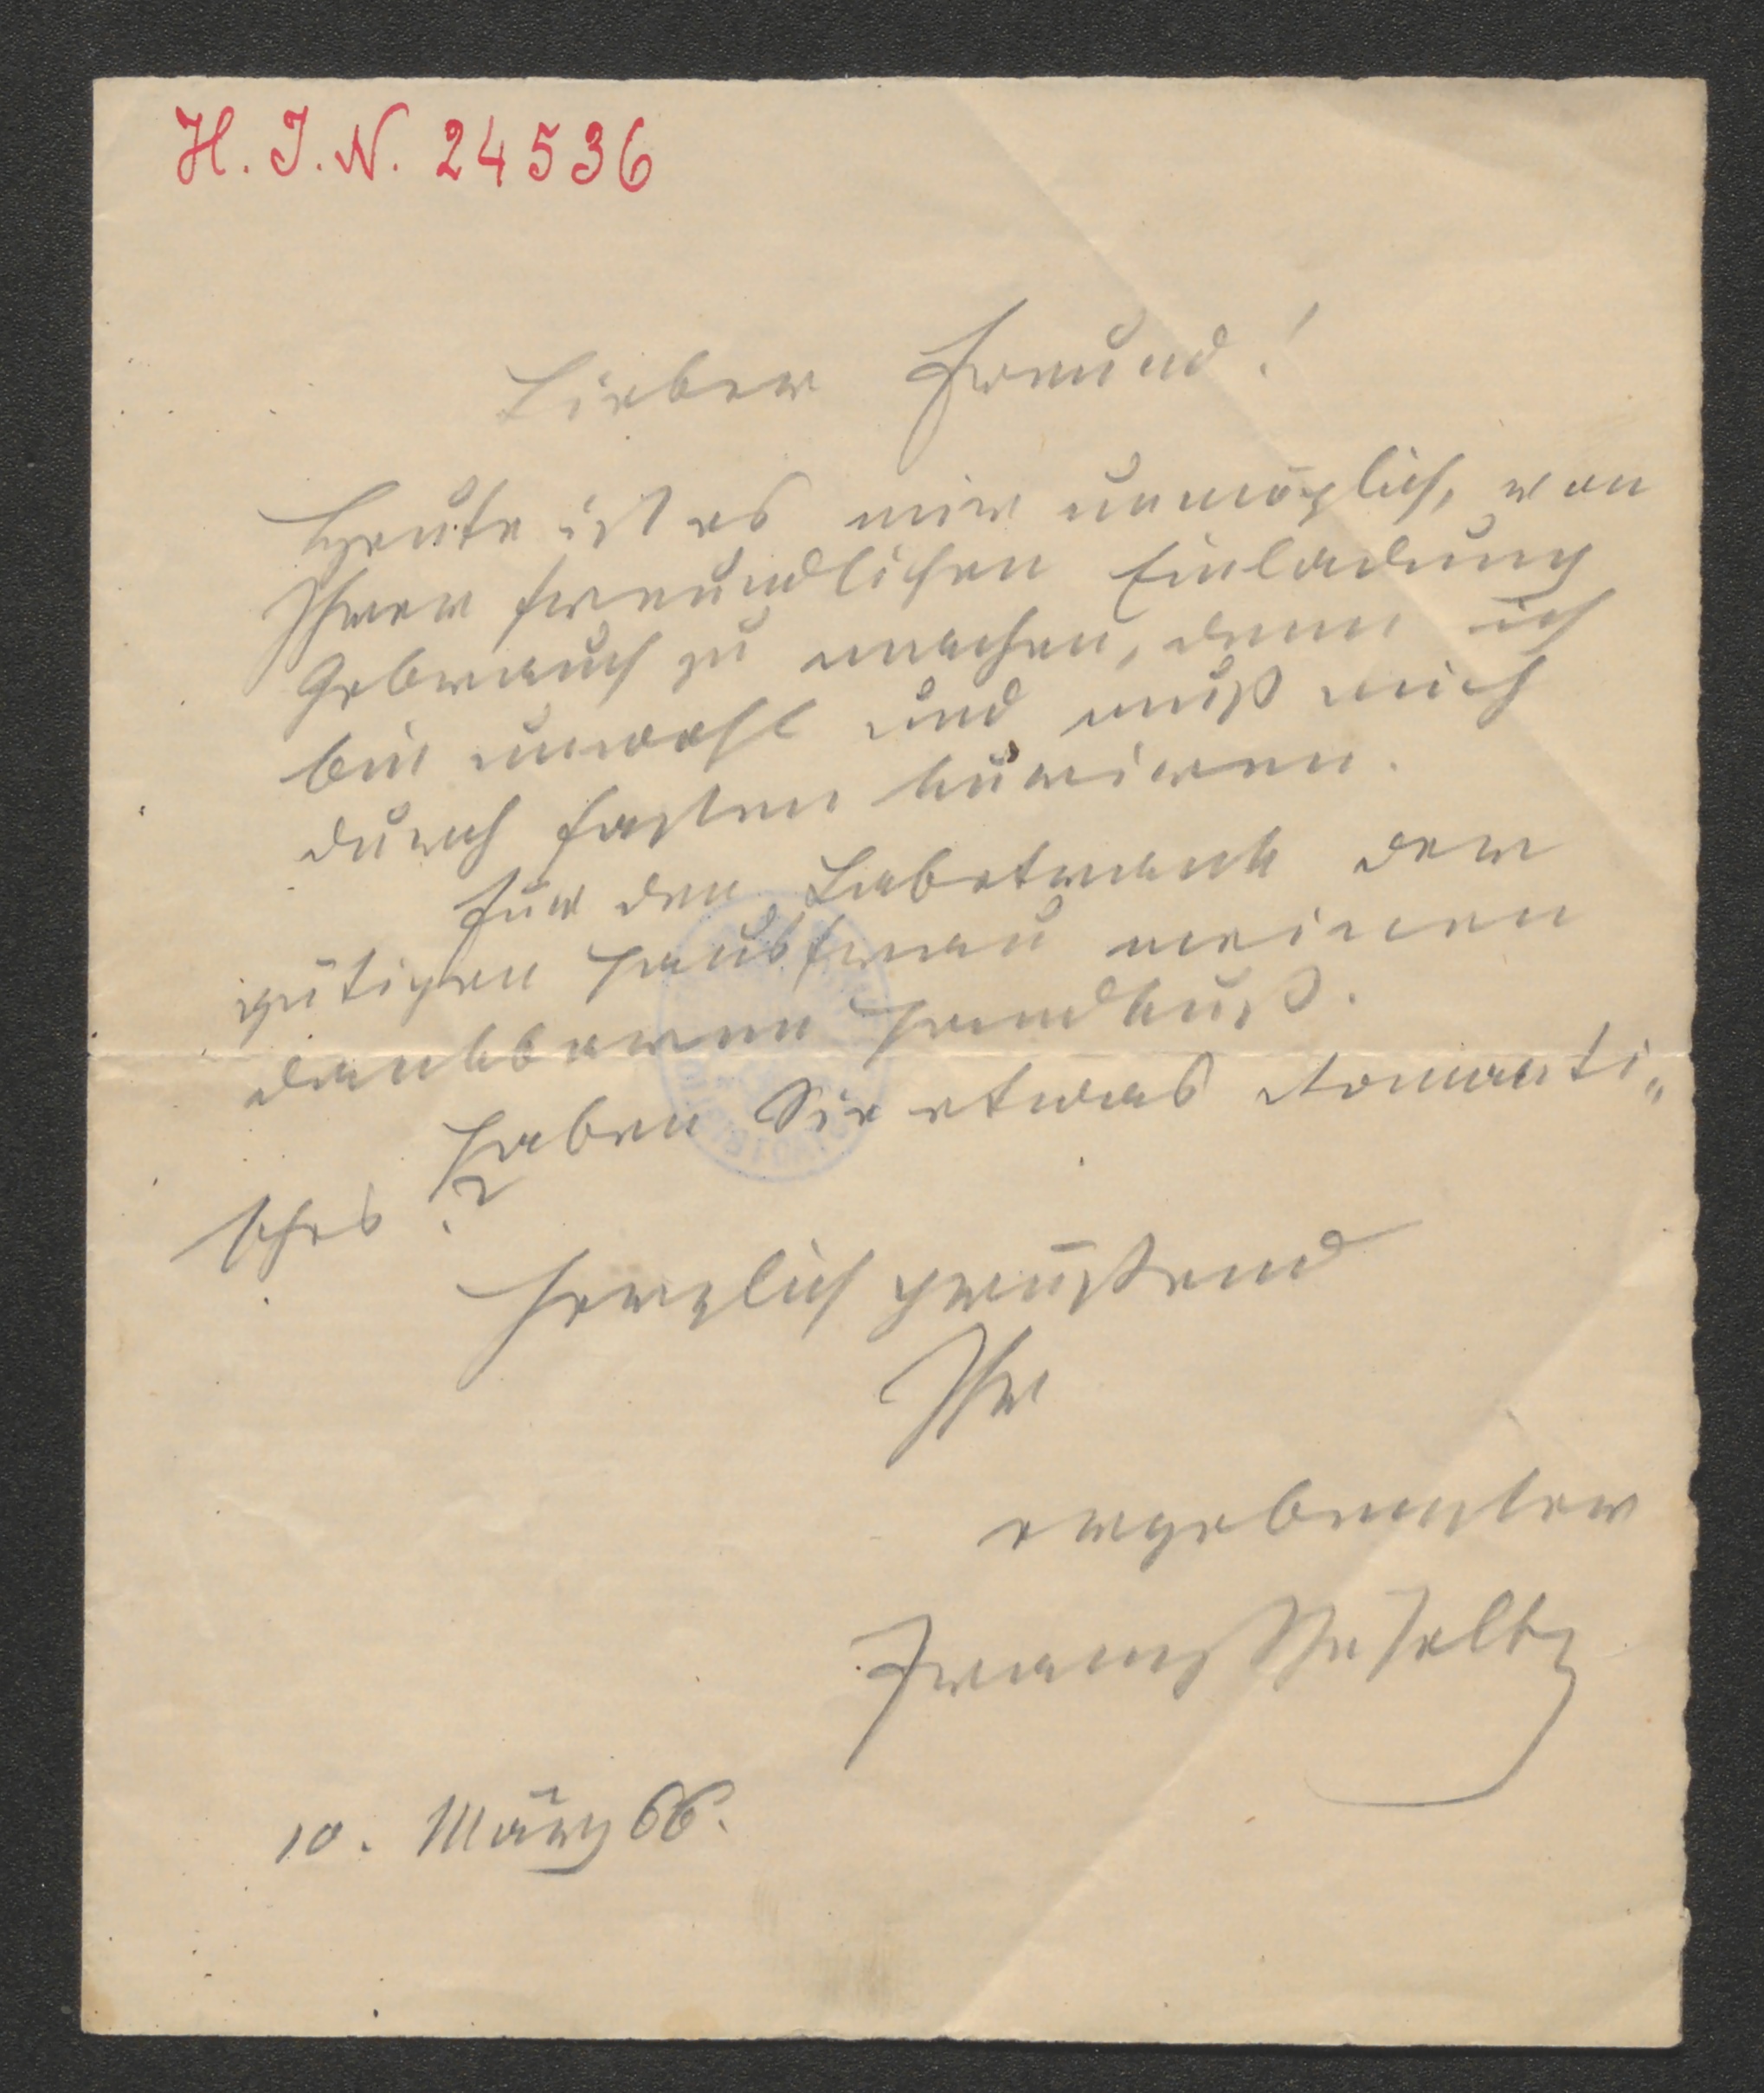 H. J. N. 24536
Lieber Freund!
Heute ist es mir unmöglich, von
Ihrer freundlichen Einladung
Gebrauch zu machen, denn ich
bin unwohl und muß mich
durch fasten kuriren.
Für den Labetrank der
gütigen Hausfrau meinen
dankbaren Handkuß.
Haben Sie etwas Romanti„
sches?
Herzlich grüßend
Ihr
ergebenster
Franz
10. März 66.